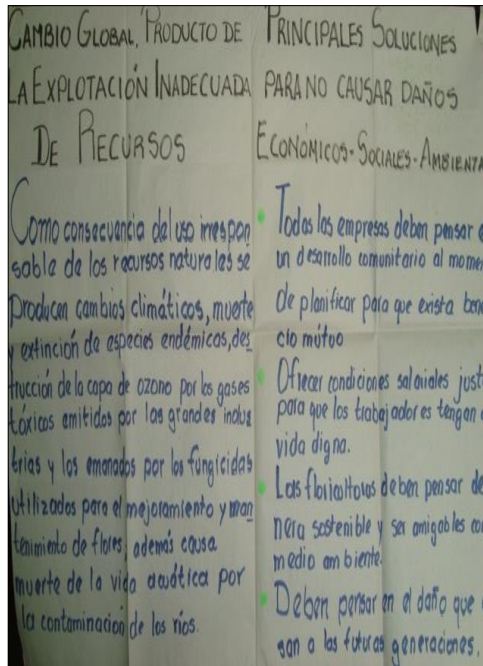 CAMBIO GLOBAL, PRODUCTO DE
LA EXPLOTACIÓN INADECUADA
DE RECURSOS
Como consecuencia del uso irrespon
sable de los recursos naturales se
producen cambios climáticos, muerte
y extinción de especies endémicas, des
trucción de la capa de ozono por los gases
tóxicos emitidos por las grandes indus
trias y los emanados por los fungicidas
utilizados para el mejoramiento y man
tenimiento de flores, además causa
muerte de la vida acuática por
la contaminación de los ríos.
PRINCIPALES SOLUCIONES
PARA NO CAUSAR DAÑOS
ECONÓMICOS-SOCIALES-AMBIENTA
Todas las empresas deben pensar e
un desarrollo comunitario al momen
de planificar para que exista bene
cio mútuo
Ofrecer condiciones salariales just
para que los trabajadores tengan
vida digna.
Los floricultores deben pensar de
nera sostenible y ser amigables con
medio ambiente.
Deben pensar en el daño que
san a las futuras generaciones.